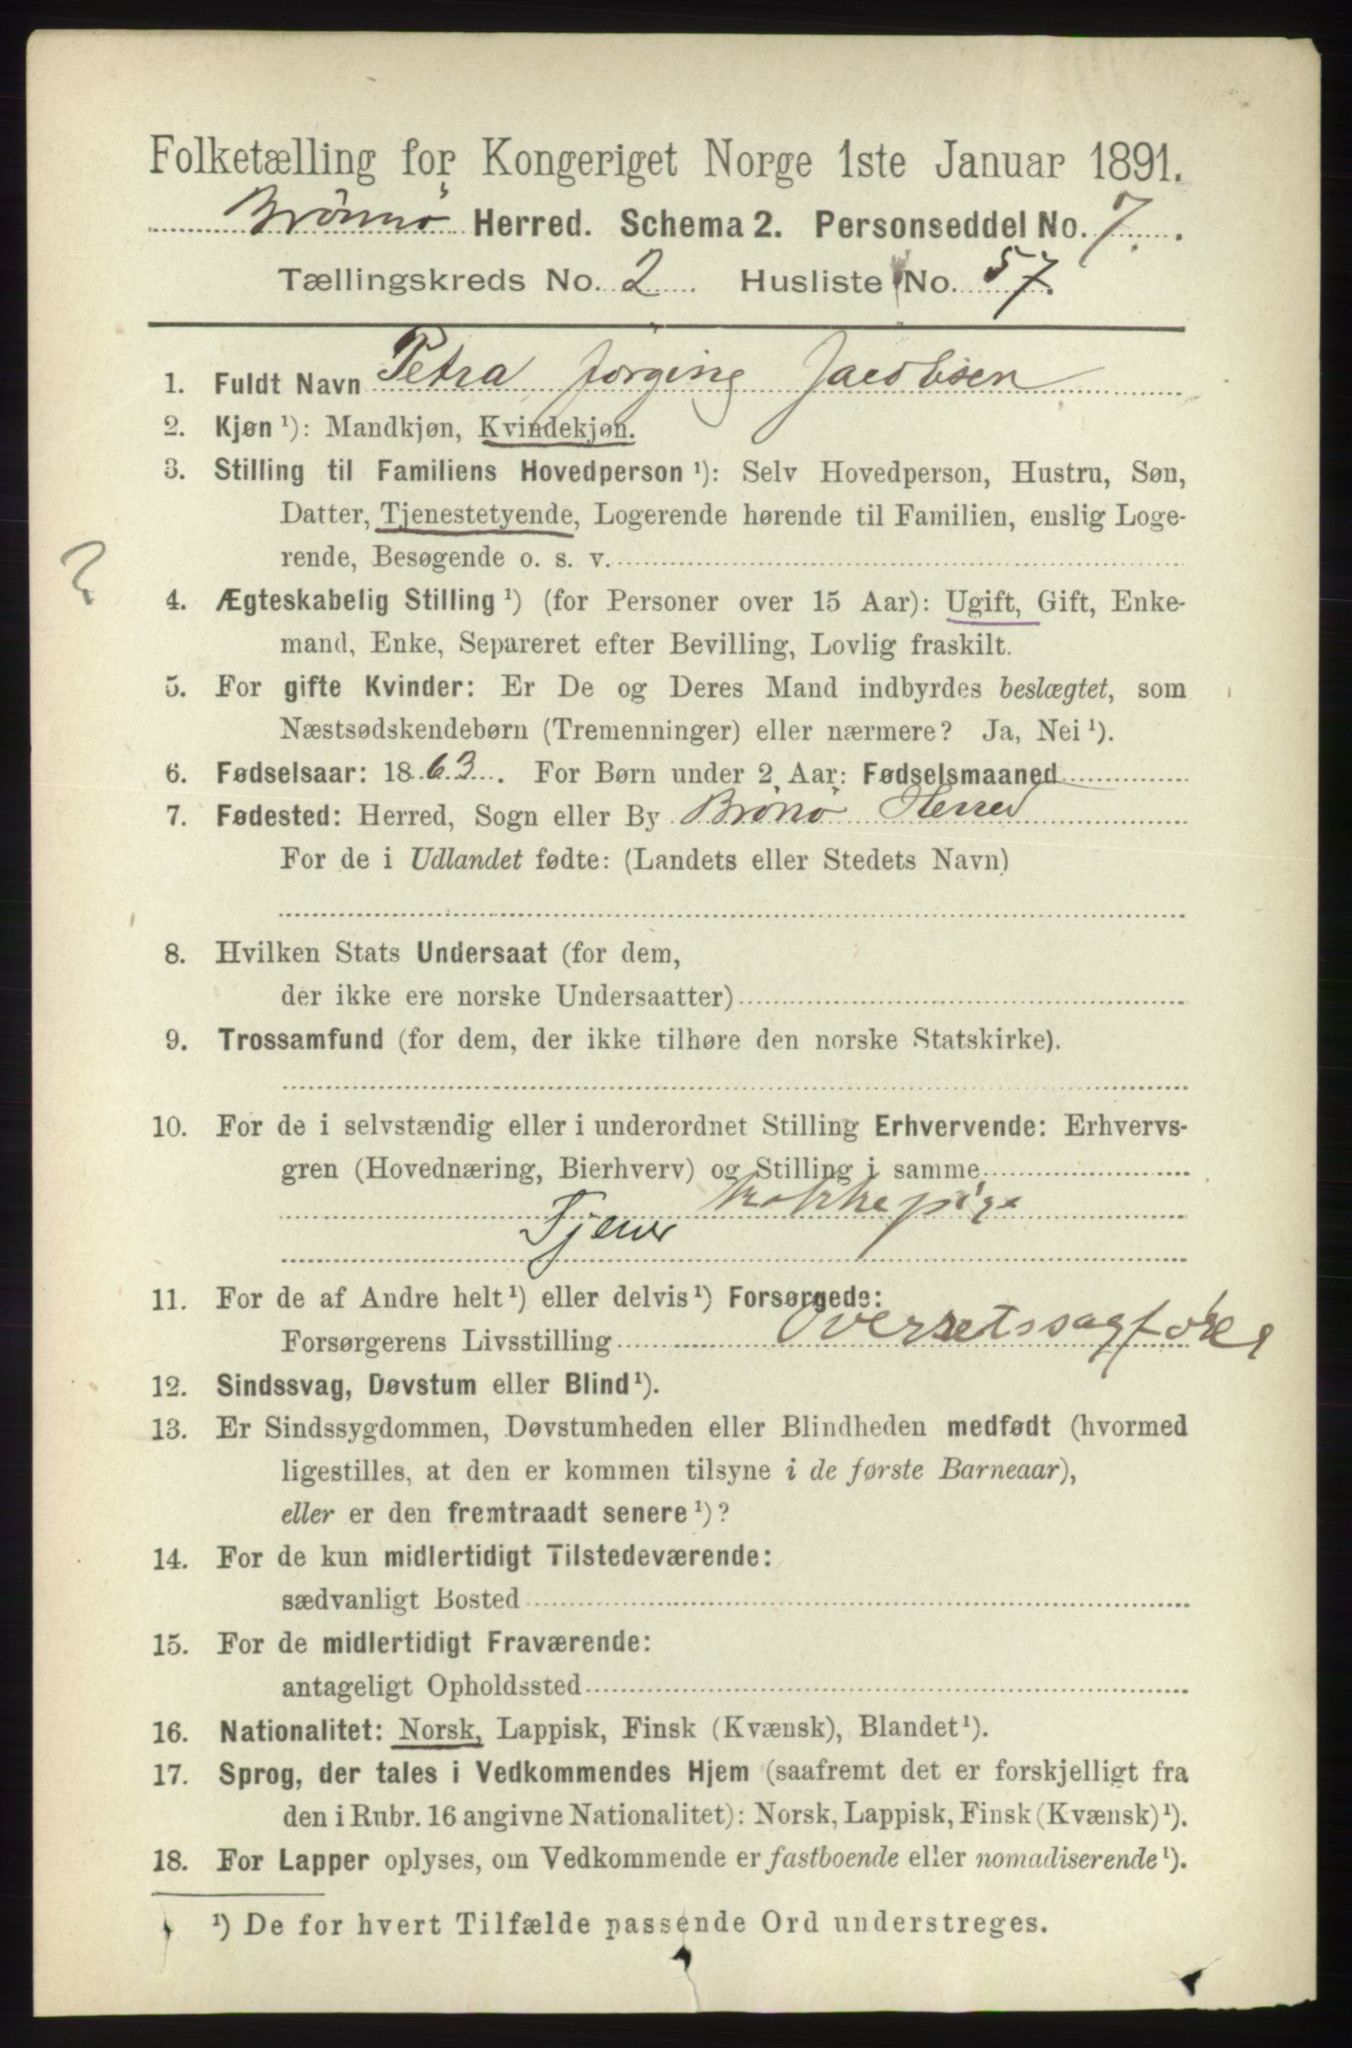 Folketælling for Kongeriget Norge 1ste Januar 1891.
Brønnø Herred. Schema 2. Personseddel No. 7.
Tællingskreds No. 2 Husliste No. 57.
1. Fuldt Navn Petra Jørgine Jacobsen
2. Kjøn ¹): Mandkjøn, Kvindekjøn.
3. Stilling til Familiens Hovedperson ¹): Selv Hovedperson, Hustru, Søn,
Datter, Tjenestetyende, Logerende hørende til Familien, enslig Loge-
rende, Besøgende o. s. v.
4. Ægteskabelig Stilling ¹) (for Personer over 15 Aar): Ugift, Gift, Enke-
mand, Enke, Separeret efter Bevilling, Lovlig fraskilt.
5. For gifte Kvinder: Er De og Deres Mand indbyrdes beslægtet, som
Næstsødskendebørn (Tremenninger) eller nærmere? Ja, Nei ¹).
6. Fødselsaar: 1863. For Børn under 2 Aar: Fødselsmaaned
7. Fødested: Herred, Sogn eller By Brønø Herred
For de i Udlandet fødte: (Landets eller Stedets Navn)
8. Hvilken Stats Undersaat (for dem,
der ikke ere norske Undersaatter)
9. Trossamfund (for dem, der ikke tilhøre den norske Statskirke).
10. For de i selvstændig eller i underordnet Stilling Erhvervende: Erhvervs-
gren (Hovednæring, Bierhverv) og Stilling i samme
Kokkepige
Tjener
11. For de af Andre helt ¹) eller delvis ¹) Forsørgede:
Forsørgerens Livsstilling Overretssagfører
12. Sindssvag, Døvstum eller Blind ¹).
13. Er Sindssygdommen, Døvstumheden eller Blindheden medfødt (hvormed
ligestilles, at den er kommen tilsyne i de første Barneaar),
eller er den fremtraadt senere ¹)?
14. For de kun midlertidigt Tilstedeværende:
sædvanligt Bosted
15. For de midlertidigt Fraværende:
antageligt Opholdssted
16. Nationalitet: Norsk, Lappisk, Finsk (Kvænsk), Blandet ¹).
17. Sprog, der tales i Vedkommendes Hjem (saafremt det er forskjelligt fra
den i Rubr. 16 angivne Nationalitet): Norsk, Lappisk, Finsk (Kvænsk) ¹).
18. For Lapper oplyses, om Vedkommende er fastboende eller nomadiserende ¹).
¹) De for hvert Tilfælde passende Ord understreges.